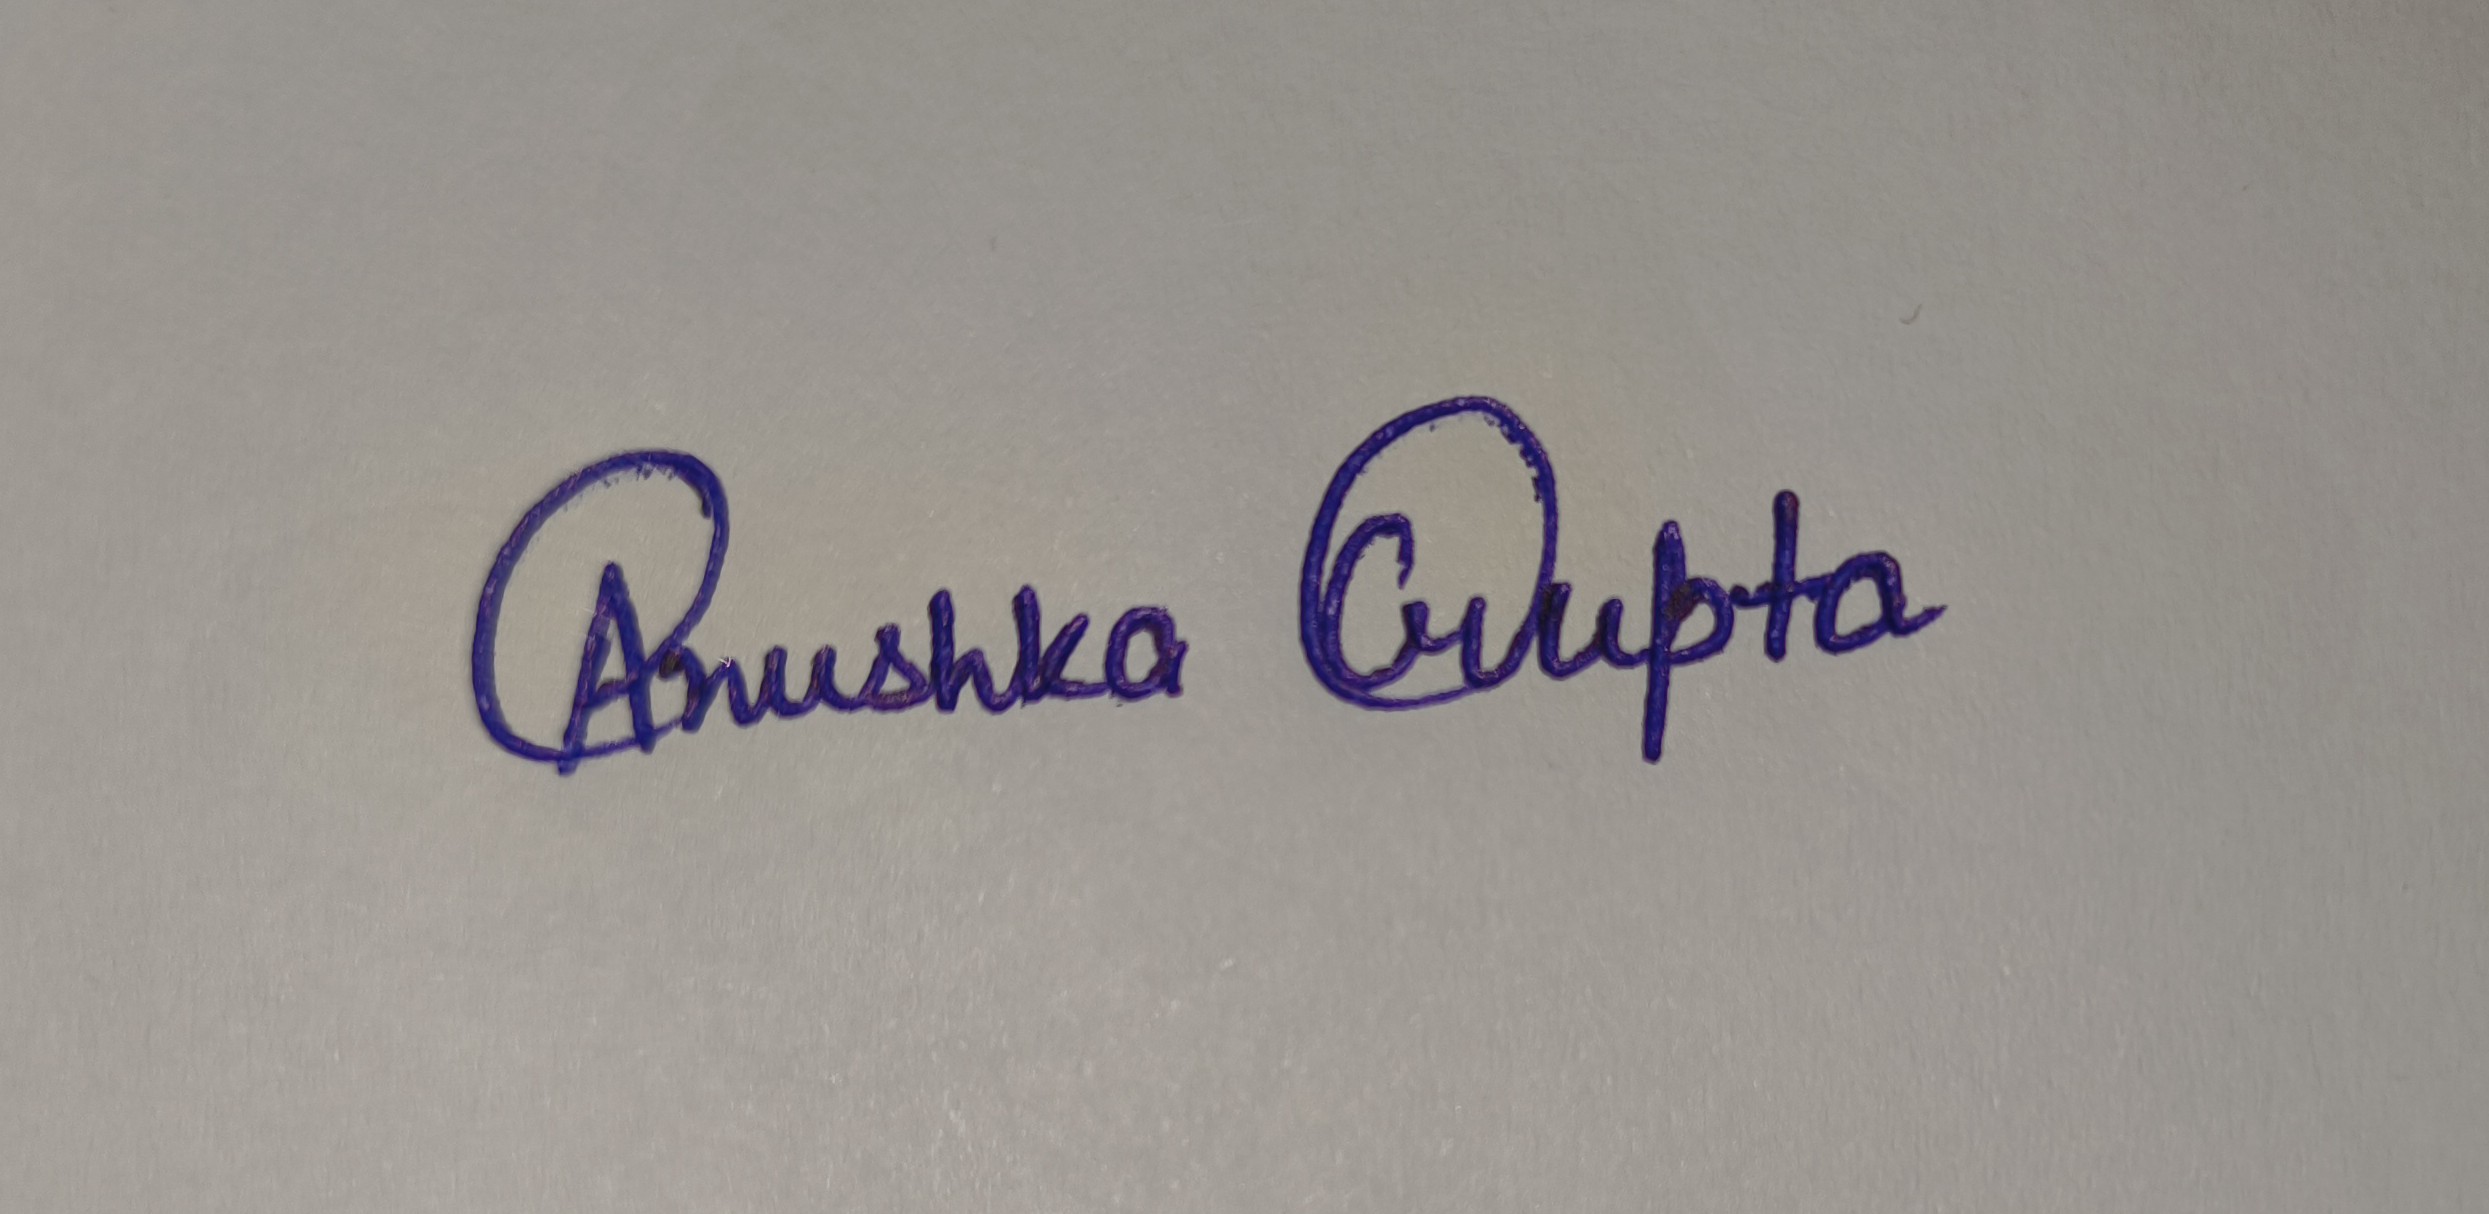 Anushka Gupta